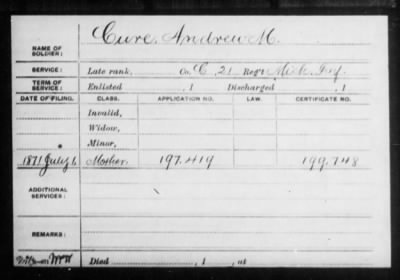 Cure, Andrew M.
NAME OF SOLDIER:
SERVICE: Late rank, Co. C, 21 Reg't Mich. Inf.
TERM OF SERVICE: Enlisted , 1 Discharged , 1
DATE OF FILING. CLASS. APPLICATION NO. LAW. CERTIFICATE NO.
Invalid,
Widow,
Minor,
1871 July 6 Mother, 197.419 199.748
ADDITIONAL SERVICES:
REMARKS:
Died , 1 , at